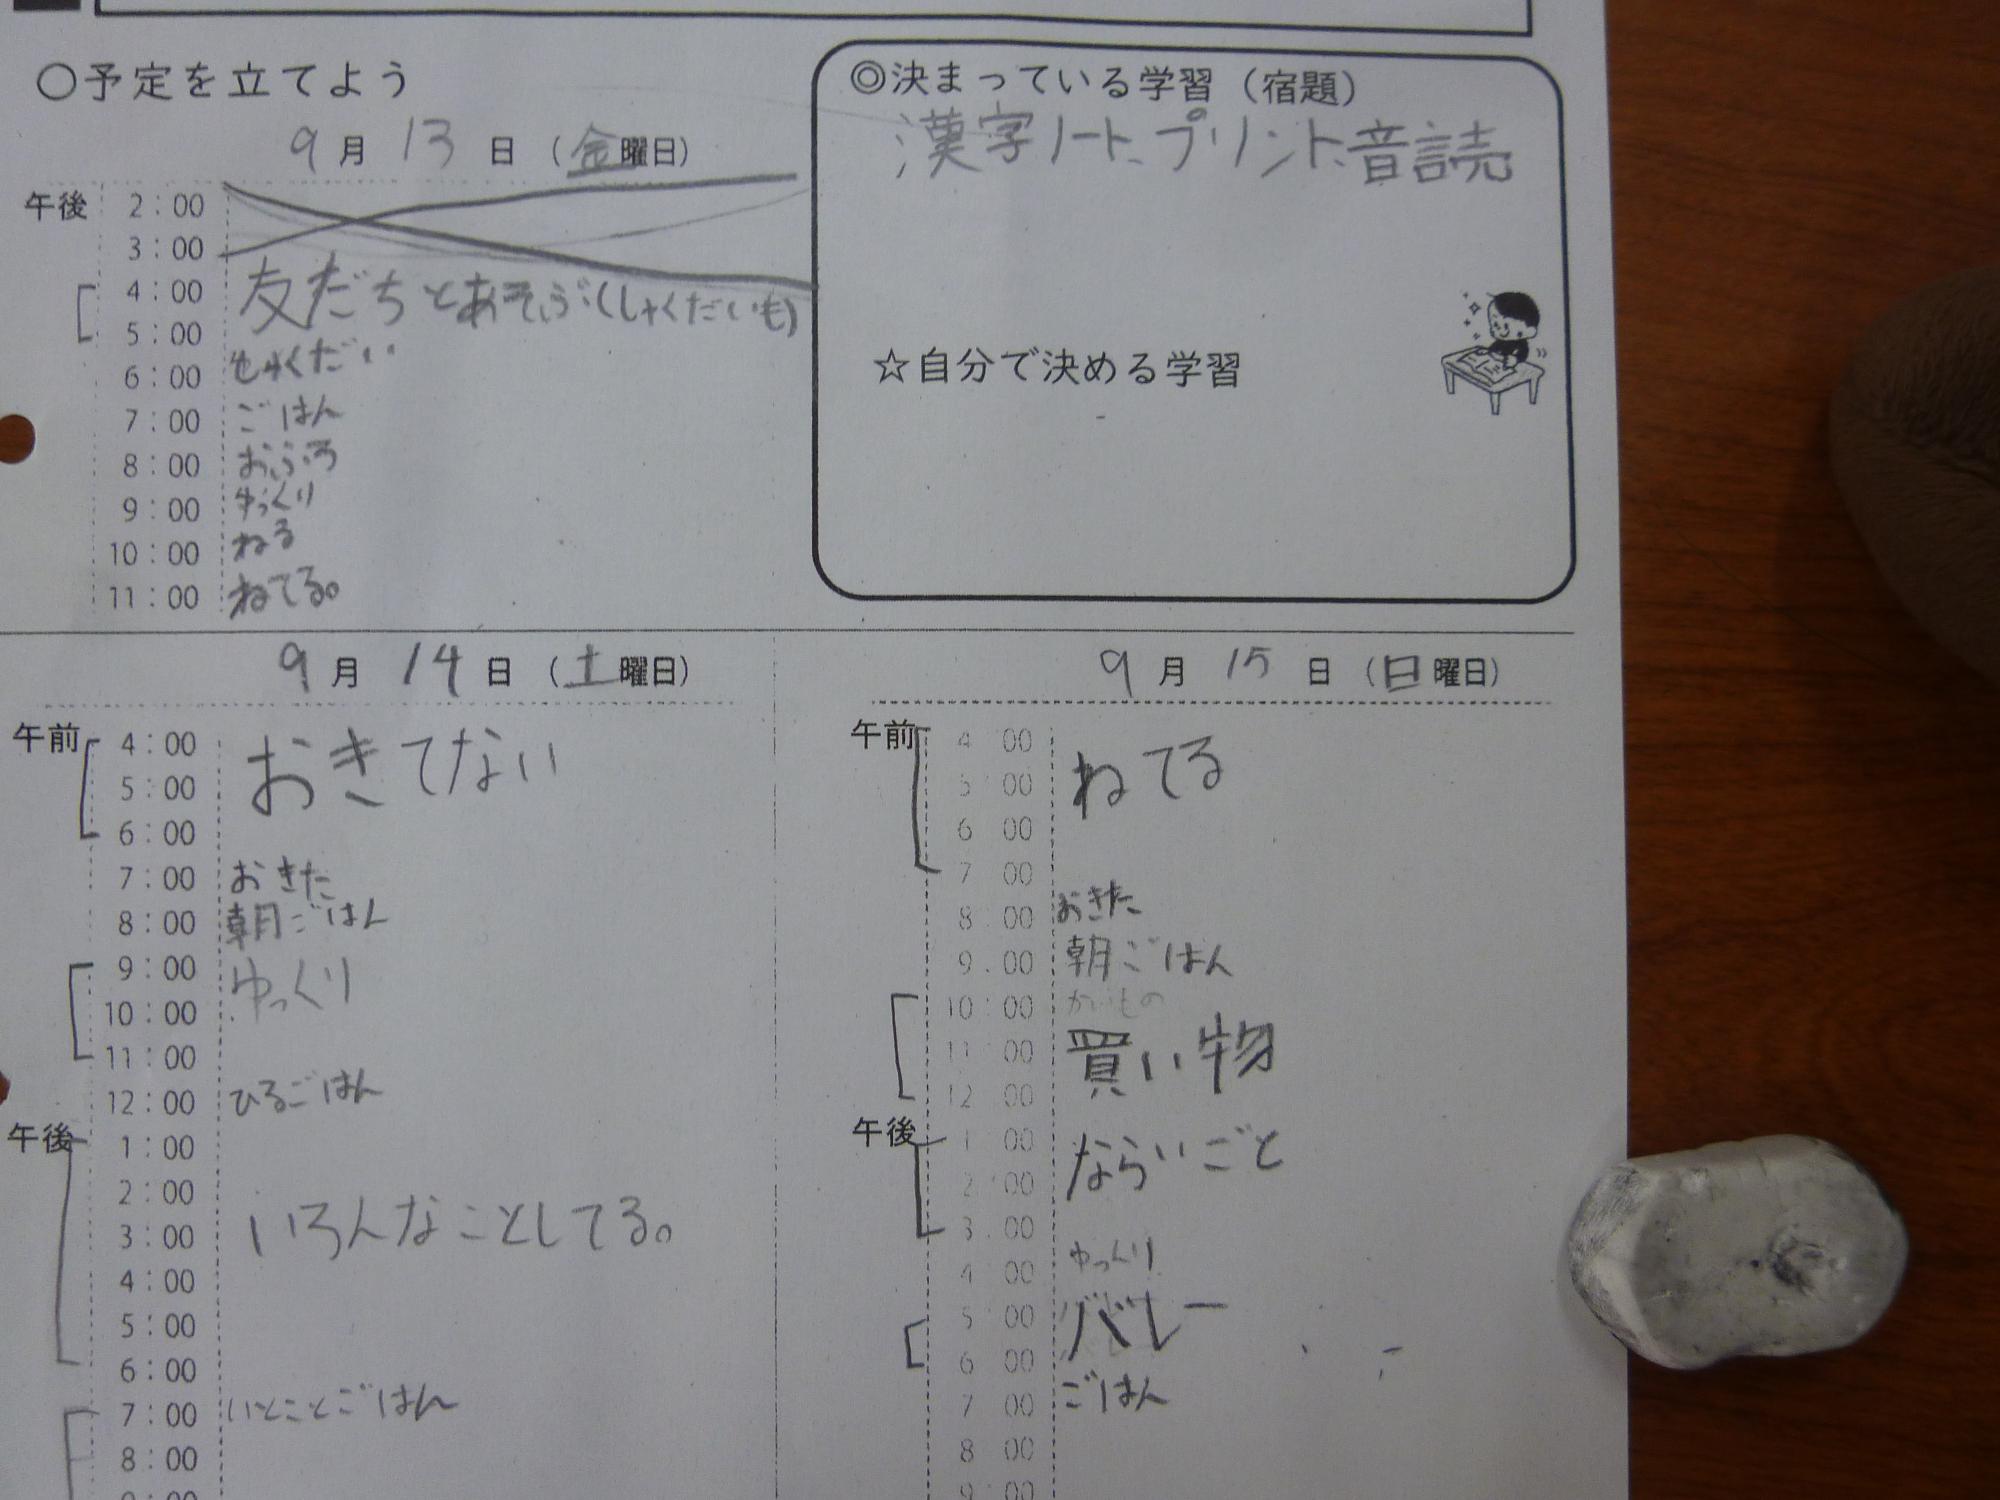 ○予定を立てよう
9月 13 日 (金曜日)
午後 2:00
3:00
4:00 友だちとあそぶ(しゅくだいも)
5:00
6:00 しゅくだい
7:00 ごはん
8:00 おふろ
9:00 ゆっくり
10:00 ねる
11:00 ねてる。
◎決まっている学習(宿題)
漢字ノート、プリント、音読
☆自分で決める学習
9月 14 日 (土曜日)
午前 4:00 おきてない
5:00
6:00
7:00 おきた
8:00 朝ごはん
9:00 ゆっくり
10:00
11:00
12:00 ひるごはん
午後 1:00
2:00
3:00 いろんなことしてる。
4:00
5:00
6:00
7:00 いとことごはん
8:00
9:00
9月 15 日 (日曜日)
午前 4:00 ねてる
5:00
6:00
7:00
8:00 おきた
9:00 朝ごはん
10:00 かいもの
11:00 買い物
12:00
午後 1:00 ならいごと
2:00
3:00
4:00 ゆっくり
5:00 バレー
6:00
7:00 ごはん
8:00
9:00